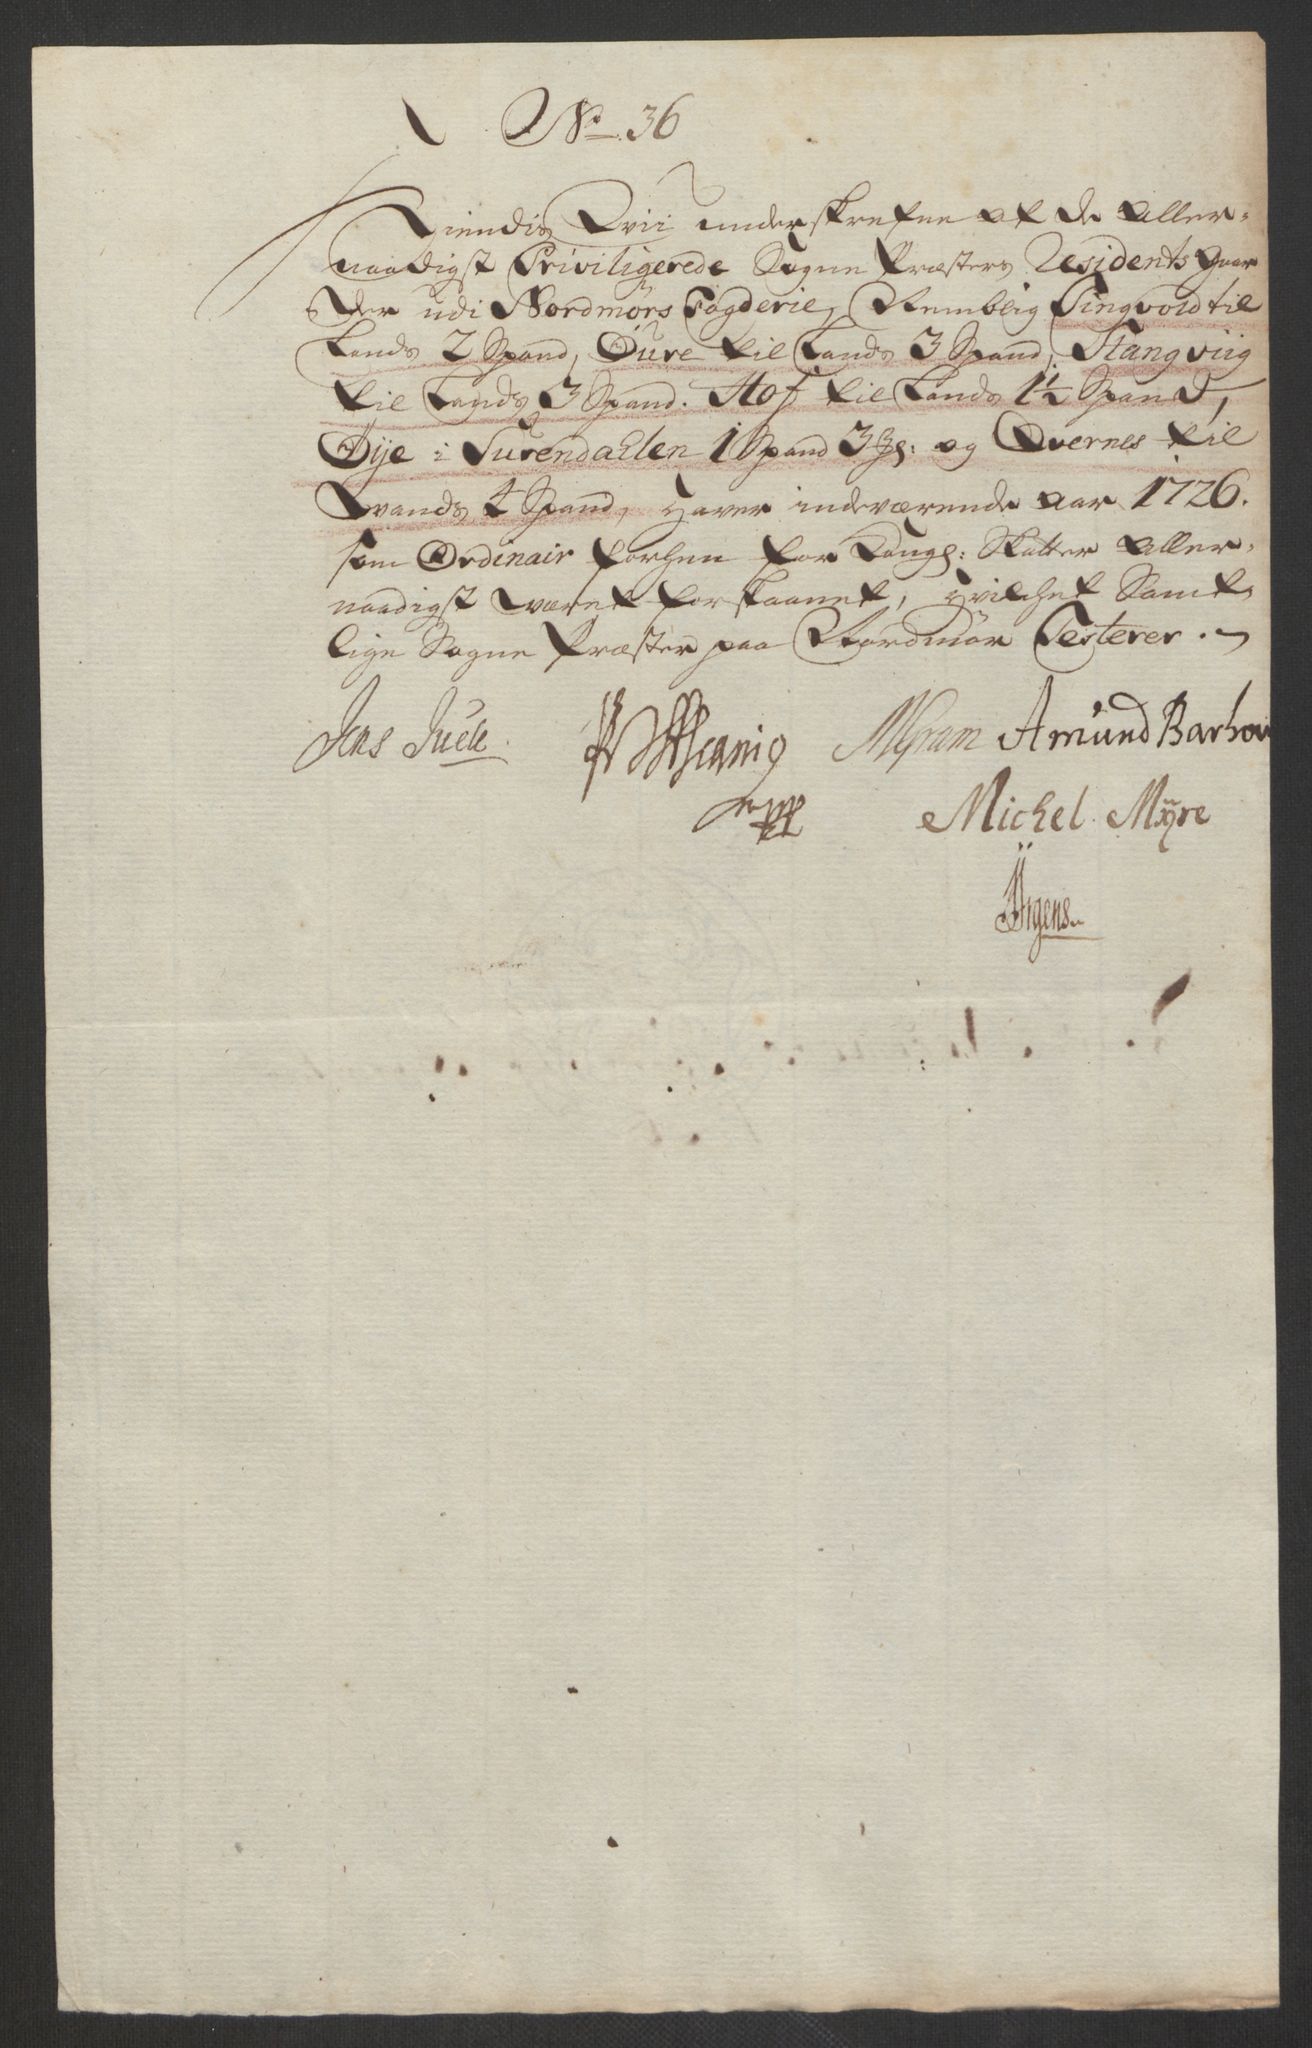 No 36
Kiendis Vii underskrefne at de Aller-
naadigst Priviligerede Sogne Præsters Residents Gaar
der udi Nordmørs Fogderie, Nemblig Tingvold til
Lands 2 Spand, Øure til Lands 3 Spand, Stangviig
til Lands 3 Spand. Hof til Lands 1½ Spand,
Øÿe i Surendallen 1 Spand og Qvernes til
Vands 4 Spand, Haver indeværende Aar 1726.
som Ordinair forhen for Kongl: Skatter Aller-
naadigst været forskaanet, Hvilchet Samt-
lige Sogne Præster paa Nordmør Testerer.
Jens Juele. MHram Amund Barhow
Michel Mÿre